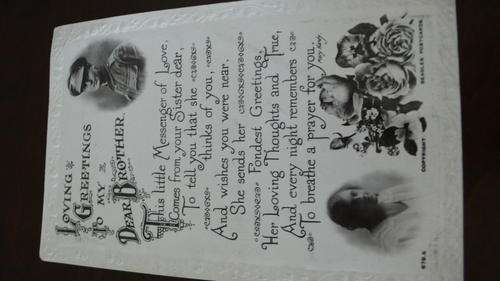 LOVING
GREETINGS
TO MY
DEAR BROTHER.
This little Messenger of Love,
Comes from your Sister dear,
To tell you that she
thinks of you,
And wishes you were near.
She sends her
Fondest Greetings,
Her Loving Thoughts and True,
And every night remembers
To breathe a prayer for you.
BEAGLES' POSTCARDS.
COPYRIGHT